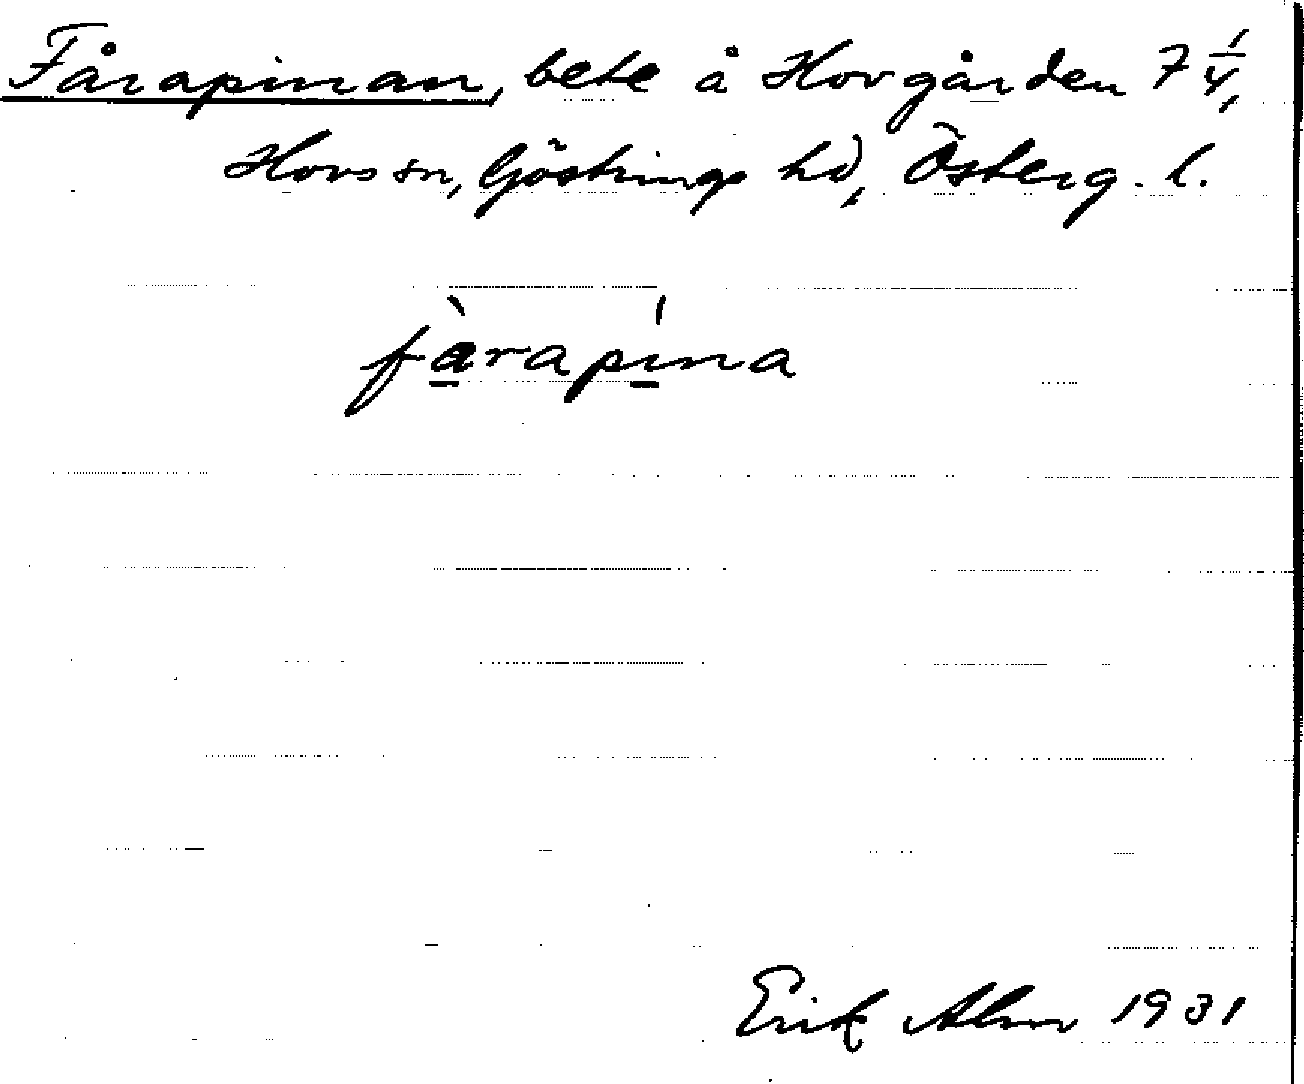 Fårapinan, bete å Hovgården 7 1/4,
Hovs sn, Göstrings hd, Österg. l.
fàrapína
Erik Alm 1931